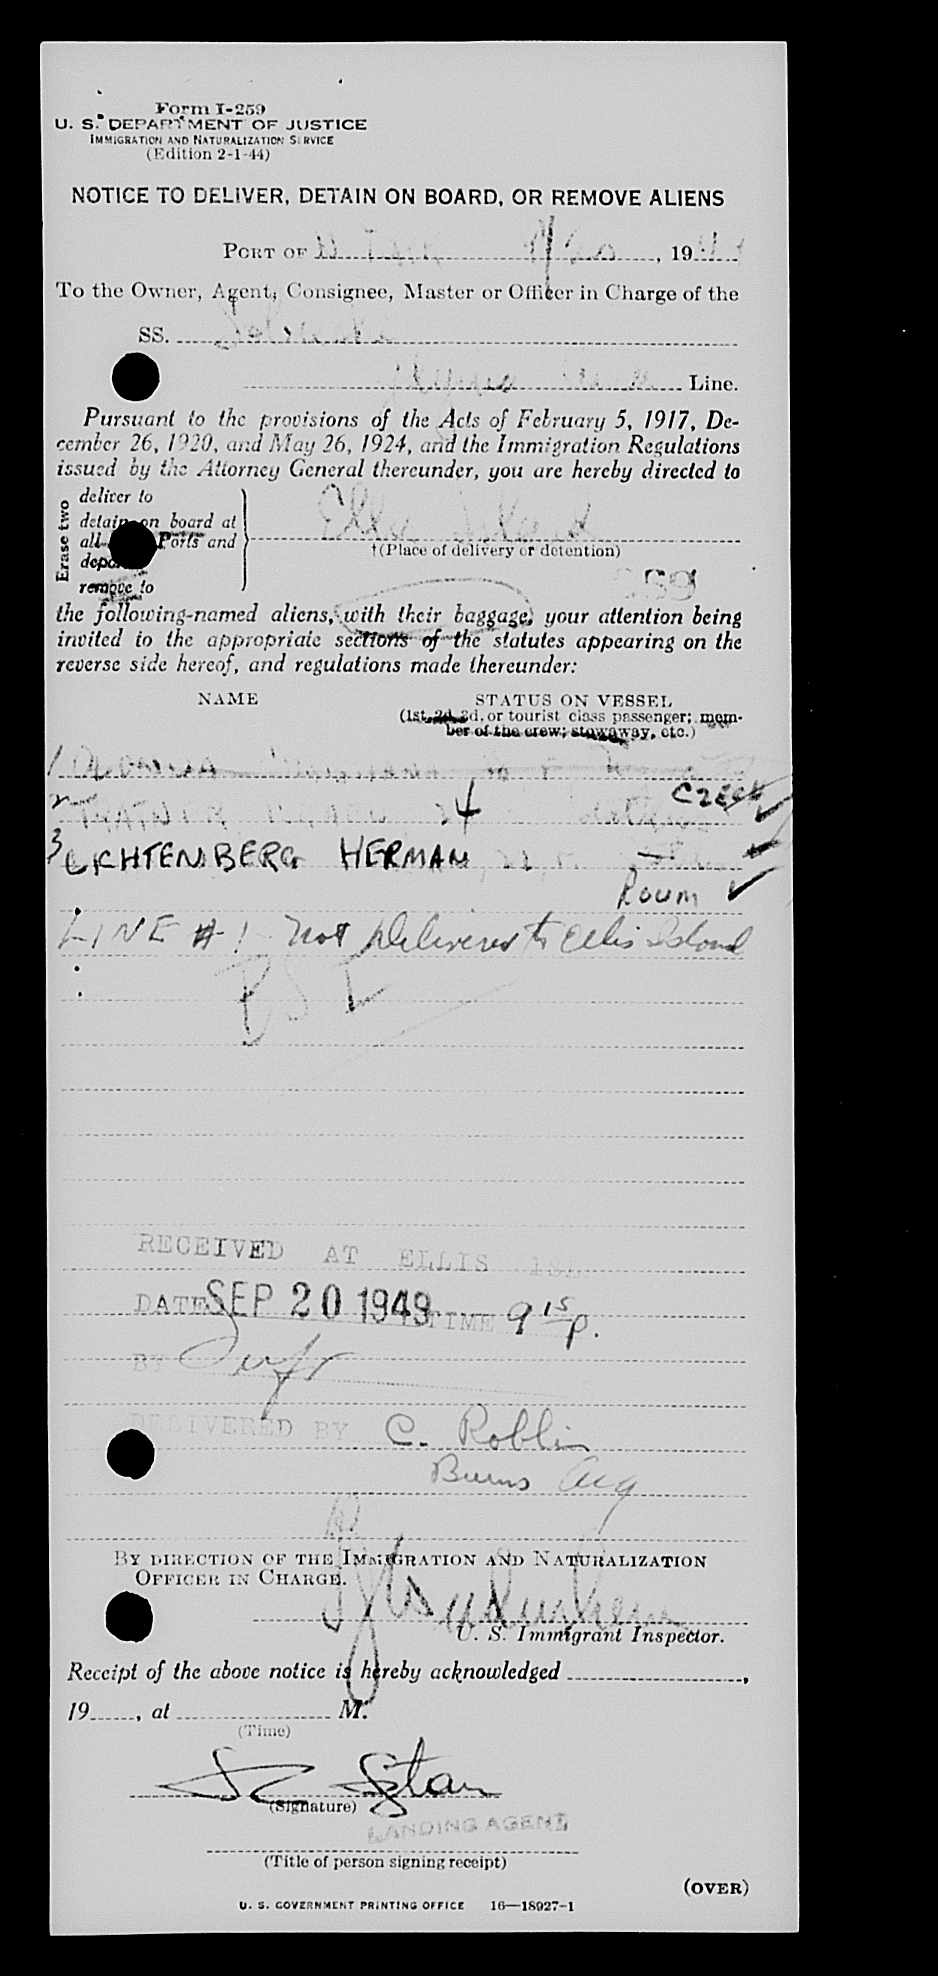 Form I-259
U. S. DEPARTMENT OF JUSTICE
IMMIGRATION AND NATURALIZATION SERVICE
(Edition 2-1-44)
NOTICE TO DELIVER, DETAIN ON BOARD, OR REMOVE ALIENS
PORT OF , 19
To the Owner, Agent, Consignee, Master or Officer in Charge of the
SS.
Line.
Pursuant to the provisions of the Acts of February 5, 1917, De-
cember 26, 1920, and May 26, 1924, and the Immigration Regulations
issued by the Attorney General thereunder, you are hereby directed to
Erase two
deliver to
detain on board at
all Ports and
remove to
Ellis Island
†(Place of delivery or detention)
259
the following-named aliens, with their baggage, your attention being
invited to the appropriate sections of the statutes appearing on the
reverse side hereof, and regulations made thereunder:
NAME STATUS ON VESSEL
(1st, 2d, 3d, or tourist class passenger; mem-
ber of the crew; stowaway, etc.)
1
2 CZECH
3 LICHTENBERG HERMAN
Roum
LINE # 1 Not Delivered to Ellis Island
RECEIVED AT ELLIS ISL
DATE SEP 20 1949 TIME 9 15 P.
BY
DELIVERED BY C. Roblin
Burns Agy
BY DIRECTION OF THE IMMIGRATION AND NATURALIZATION
OFFICER IN CHARGE.
U. S. Immigrant Inspector.
Receipt of the above notice is hereby acknowledged ,
19 , at M.
(Time)
(Signature)
LANDING AGENT
(Title of person signing receipt)
(OVER)
U. S. GOVERNMENT PRINTING OFFICE 16—18927-1